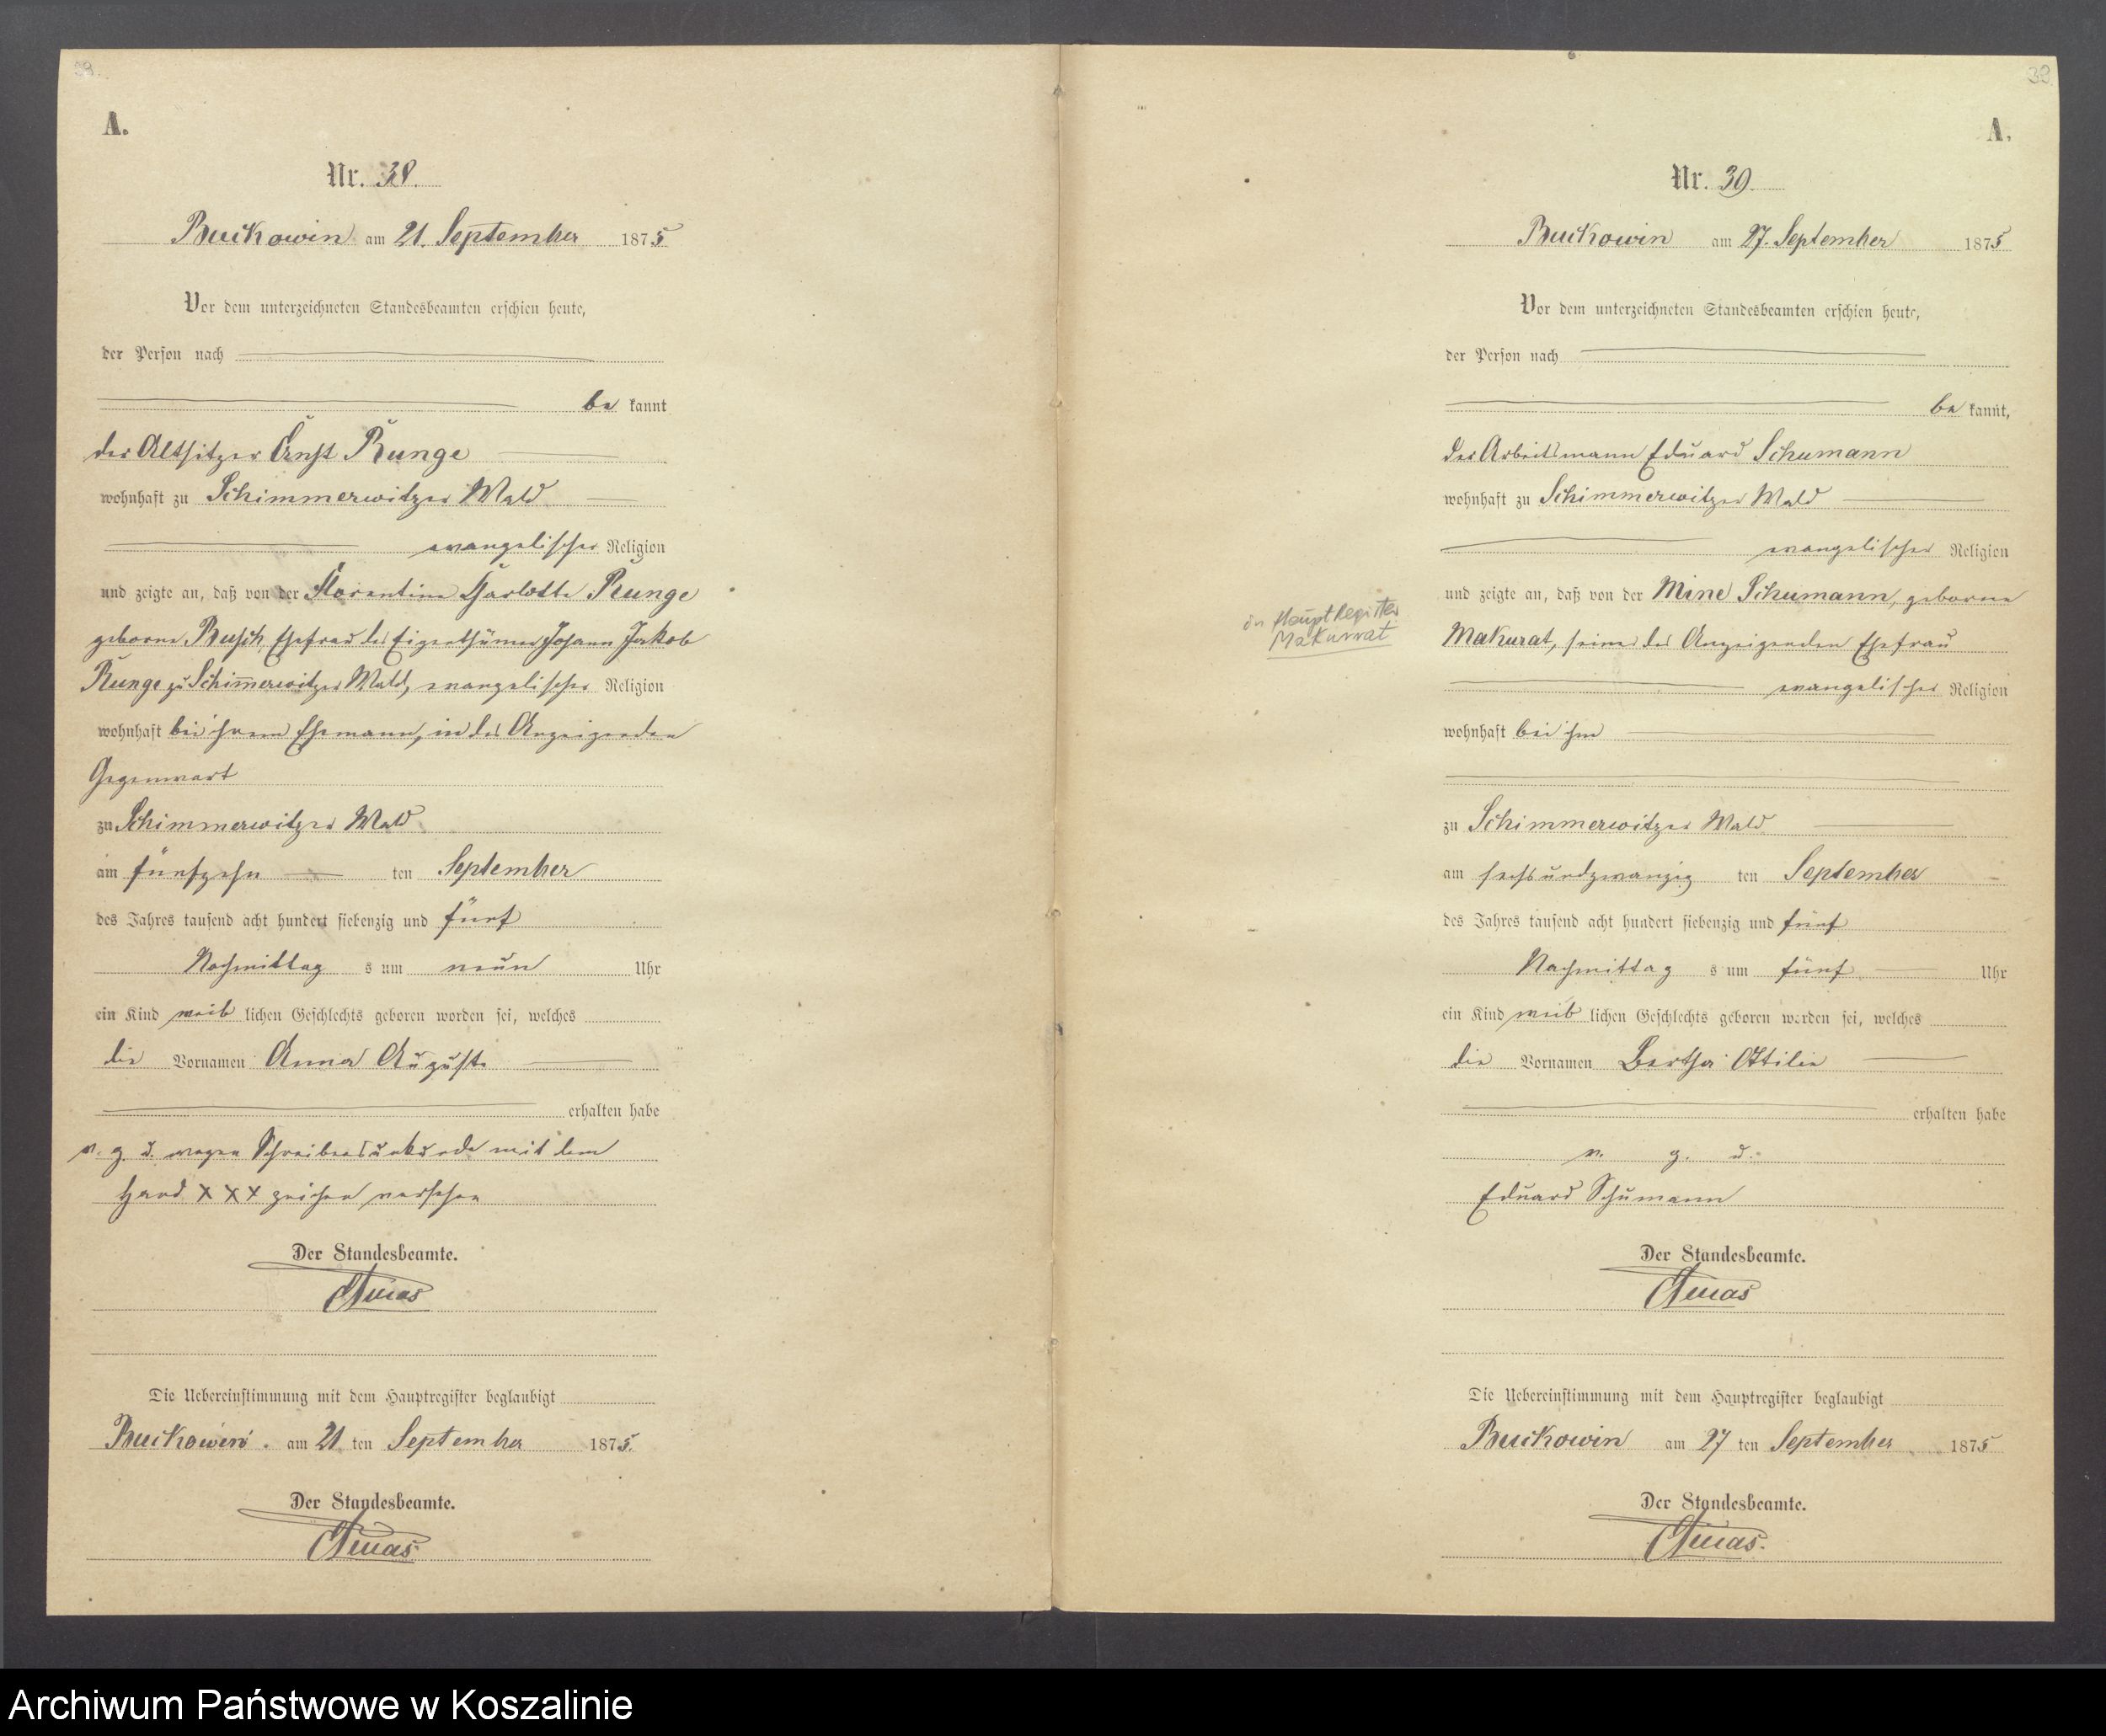 38.
A.
Nr. 38.
Buckowin am 21. September 1875
Vor dem unterzeichneten Standesbeamten erschien heute,
der Person nach
be kannt
der Altsitzer Ernst Runge
wohnhaft zu Schimmerwitzer Wald
evangelischer Religion
und zeigte an, daß von der Florentine Charlotte Runge
geborne Busch, Ehefrau des Eigenthümer Johann Jakob
Runge zu Schim̅erwitzer Wald, evangelischer Religion
wohnhaft bei ihrem Ehemann, in des Anzeigenden
Gegenwart
zu Schimmerwitzer Wald
am fünfzehn ten September
des Jahres tausend acht hundert siebenzig und fünf
Nachmittag s um neun Uhr
ein Kind weib lichen Geschlechts geboren worden sei, welches
die Vornamen Anna Auguste
erhalten habe
v. g. u. wegen Schreibensunkunde mit dem
Hand XXX zeichen versehen
Der Standesbeamte.
Die Uebereinstimmung mit dem Hauptregister beglaubigt
Buckowin. am 21 ten September 1875.
Der Standesbeamte.
39
A.
Nr. 39.
Buckowin am 27. September 1875
Vor dem unterzeichneten Standesbeamten erschien heute,
der Person nach
be kannt,
der Arbeitsmann Eduard Schumann
wohnhaft zu Schimmerwitzer Wald
evangelischer Religion
und zeigte an, daß von der Mine Schumann, geborne
Makurat, seiner des Anzeigenden Ehefrau
im Hauptregister
Makurrat
evangelischer Religion
wohnhaft bei ihm
zu Schimmerwitzer Wald
am sechsundzwanzig ten September
des Jahres tausend acht hundert siebenzig und fünf
Nachmittag s um fünf Uhr
ein Kind weib lichen Geschlechts geboren worden sei, welches
die Vornamen Bertha Ottilie
erhalten habe
v. g. u.
Eduard Schumann
Der Standesbeamte.
Die Uebereinstimmung mit dem Hauptregister beglaubigt
Buckowin am 27 ten September 1875
Der Standesbeamte.
Archiwum Państwowe w Koszalinie